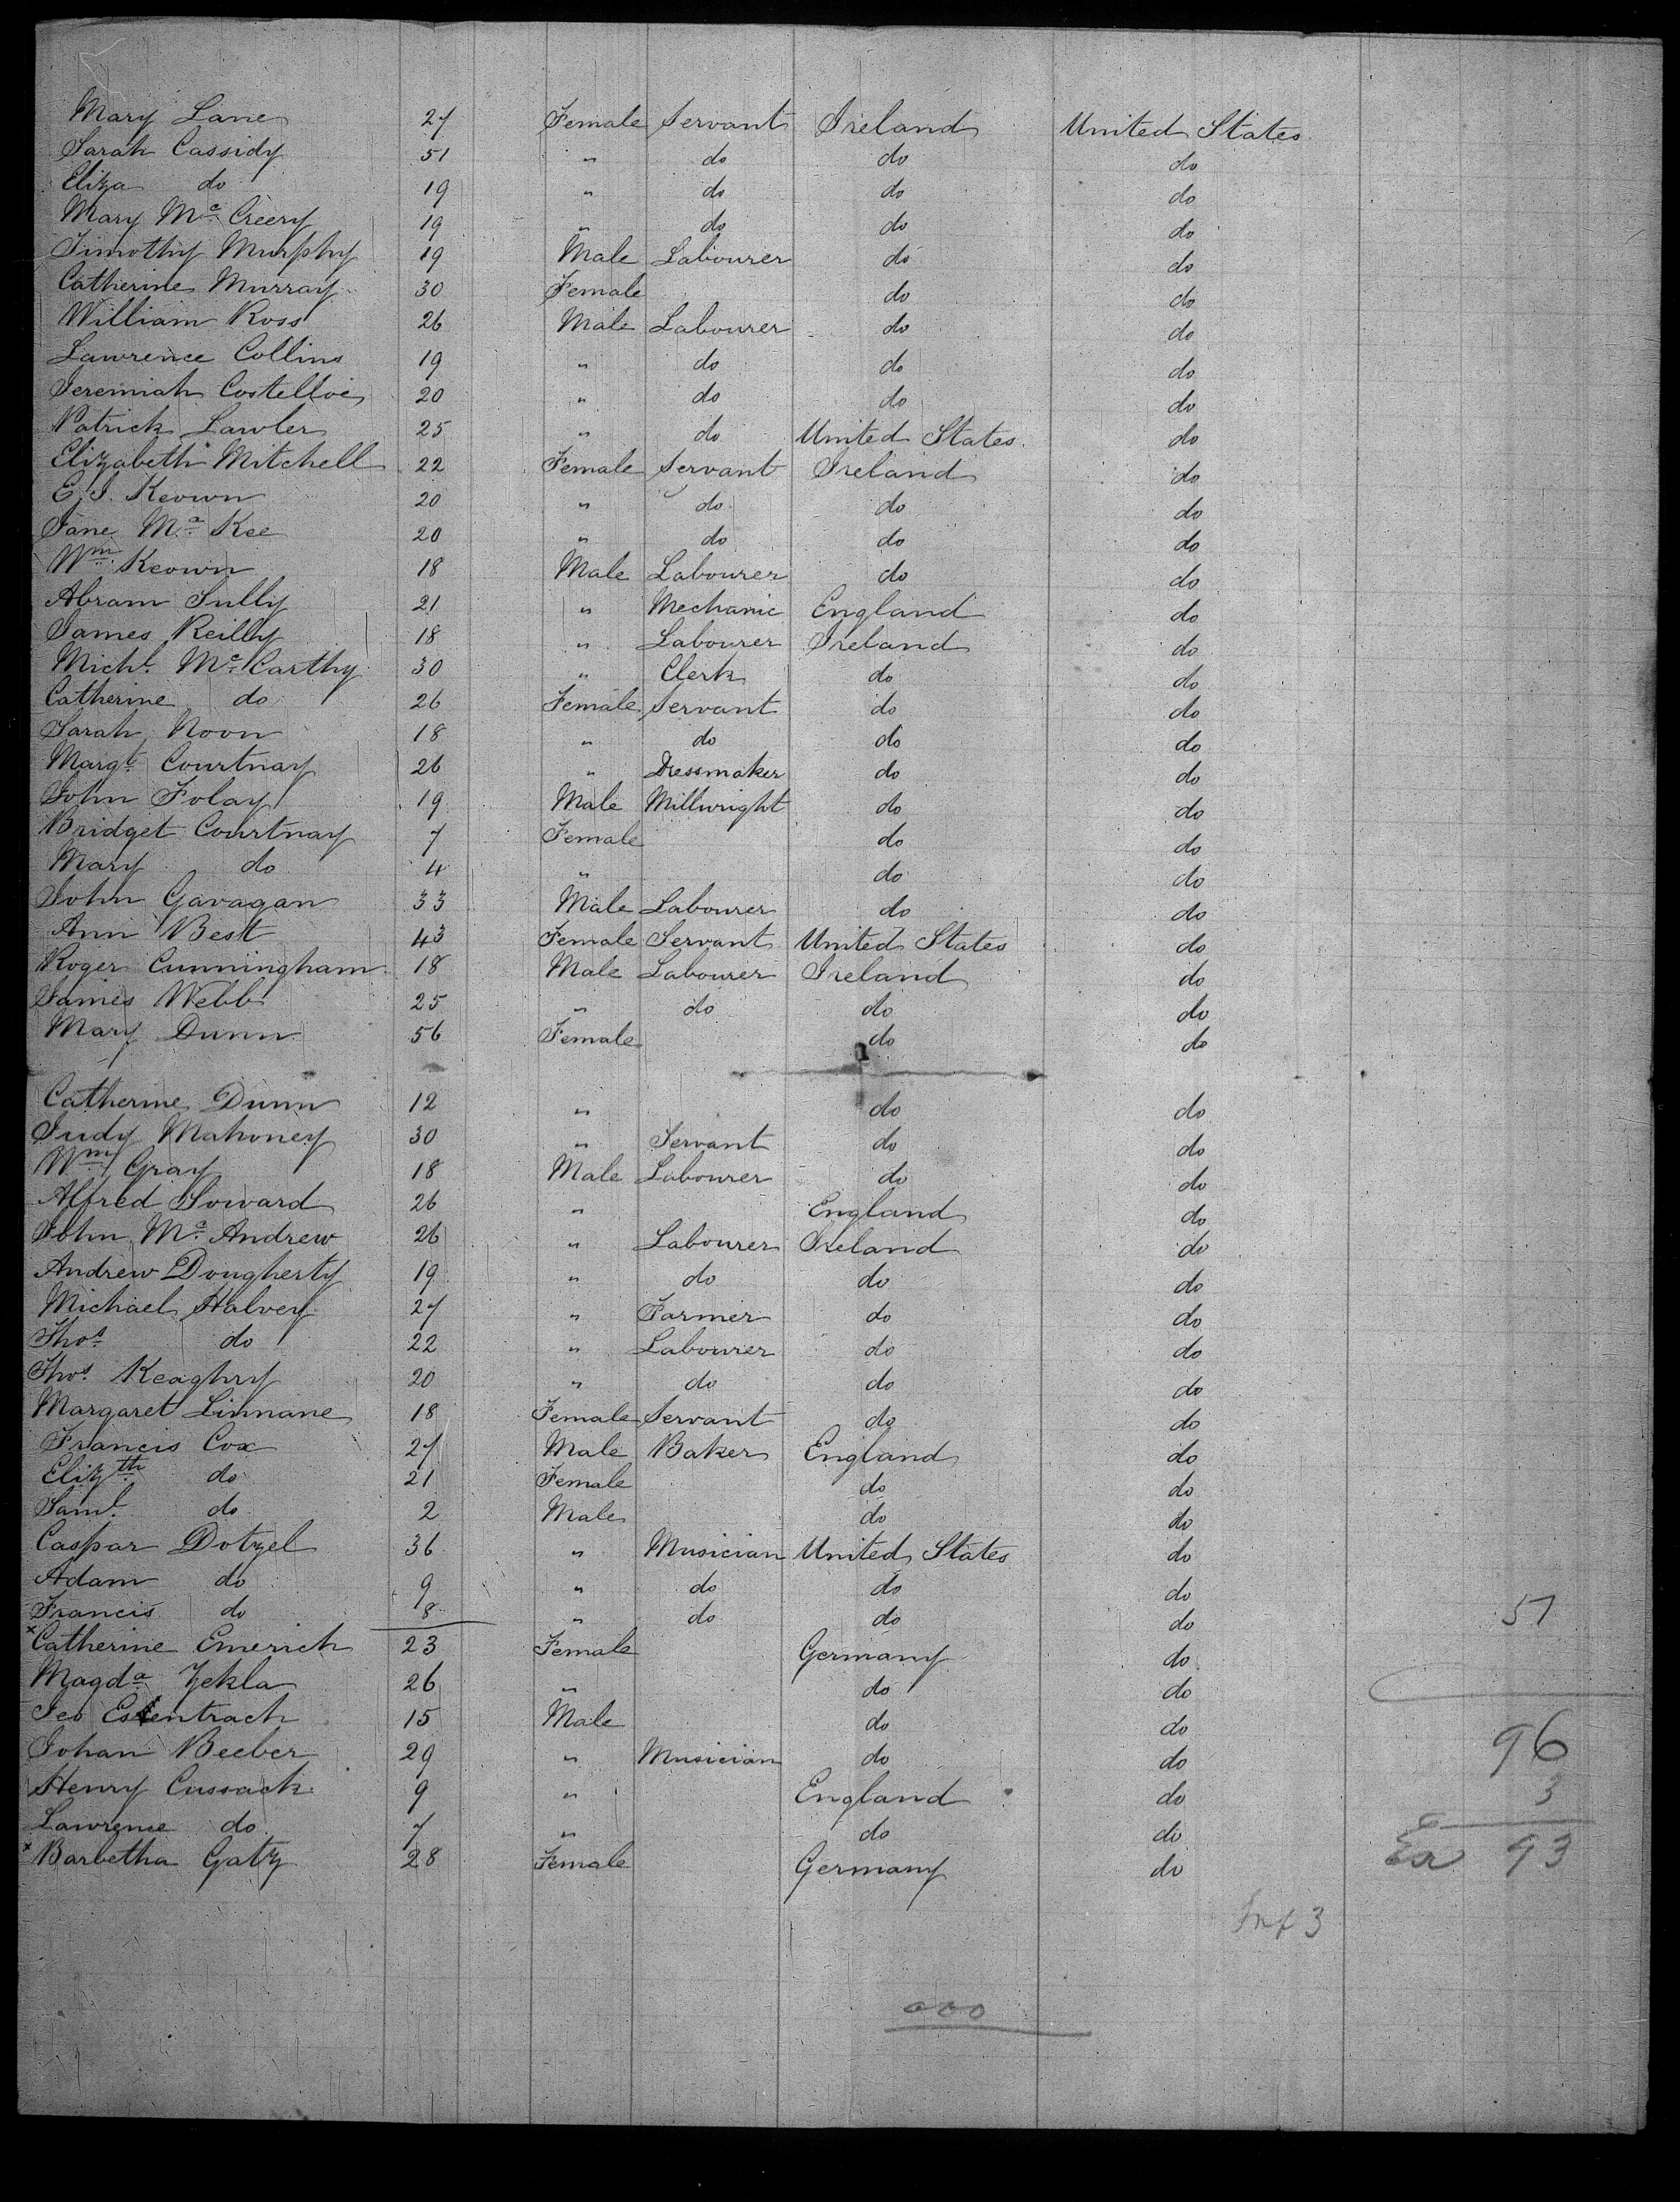 Mary Lane 27 Female Servant Ireland United States
Sarah Cassidy 51 " do do do
Eliza do 19 " do do do
Mary Mc Creery 19 " do do do
Timothy Murphy 19 Male Labourer do do
Catherine Murray 30 Female do do
William Ross 26 Male Labourer do do
Lawrence Collins 19 " do do do
Jeremiah Costelloe 20 " do do do
Patrick Lawler 25 " do United States do
Elizabeth Mitchell 22 Female Servant Ireland do
E. J. Keown 20 " do do do
Jane Mc Kee 20 " do do do
Wm Keown 18 Male Labourer do do
Abram Sully 21 " Mechanic England do
James Reilly 18 " Labourer Ireland do
Michl. Mc Carthy 30 " Clerk do do
Catherine do 26 Female Servant do do
Sarah Noon 18 " do do do
Margt. Courtnay 26 " Dressmaker do do
John Folay 19 Male Millwright do do
Bridget Courtnay 7 Female do do
Mary do 4 " do do
John Gavagan 33 Male Labourer do do
Ann Best 43 Female Servant United States do
Roger Cunningham 18 Male Labourer Ireland do
James Webb 25 " do do do
Mary Dunn 56 Female do do
Catherine Dunn 12 " do do
Judy Mahoney 30 " Servant do do
Wm Gray 18 Male Labourer do do
Alfred Soward 26 " England do
John Mc Andrew 26 " Labourer Ireland do
Andrew Dougherty 19 " do do do
Michael Halvey 27 " Farmer do do
Thos. do 22 " Labourer do do
Thos. Keaghry 20 " do do do
Margaret Linnane 18 Female Servant do do
Francis Cox 27 Male Baker England do
Elizth. do 21 Female do do
Saml. do 2 Male do do
Caspar Dotzel 36 " Musician United States do
Adam do 9 " do do do
Francis do 8 " do do do 51
x Catherine Emerich 23 Female Germany do
Magda. Zekla 26 " do do
Male 15 do do
Johan Beeber 29 " Musician do do 96
Henry Cussack 9 " England do 3
Lawrence do 7 " do do
x Barbetha Gatz 28 Female Germany do 93
Inf 3